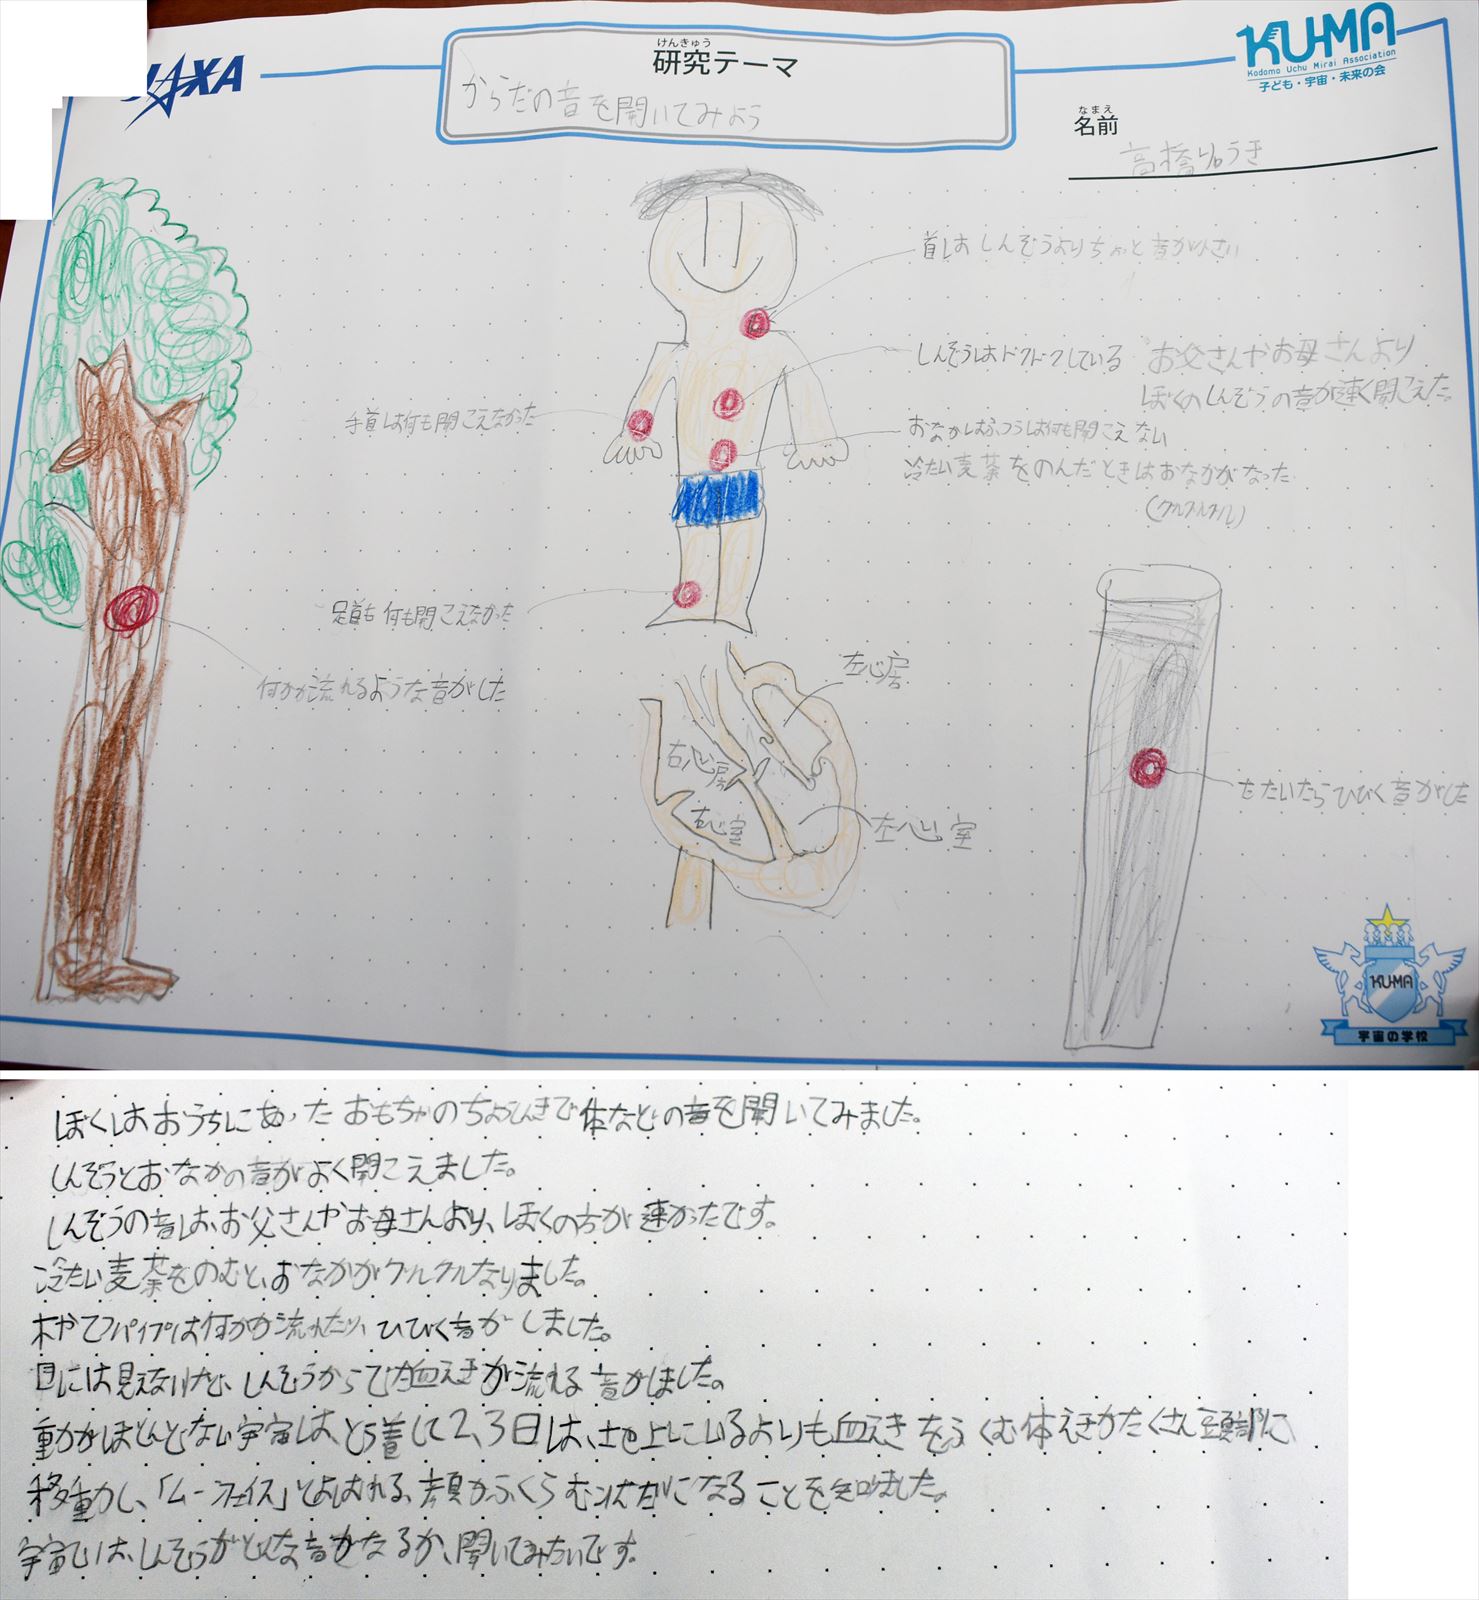 けんきゅう
研究テーマ
からだの音を聞いてみよう
JAXA
KU-MA
Kodomo Uchu Mirai Association
子ども・宇宙・未来の会
なまえ
名前
高橋りゅうき
首はしんぞうよりちょっと音が小さい
しんぞうはドクドクしている お父さんやお母さんより
ぼくのしんぞうの音が速く聞こえた。
手首は何も聞こえなかった
おなかはふつうは何も聞こえない
冷たい麦茶をのんだときはおなかがなった
(クルクルクル)
足首も何も聞こえなかった
何かが流れるような音がした
左心房
右心房
右心室
左心室
たたいたらひびく音がした
KU-MA
宇宙の学校
ぼくはおうちにあったおもちゃのちょうしんきで体などの音を聞いてみました。
しんぞうとおなかの音がよく聞こえました。
しんぞうの音は、お父さんやお母さんより、ぼくの方が速かったです。
冷たい麦茶をのむと、おなかがクルクルなりました。
木やてつパイプは何かが流れたり、ひびく音がしました。
目には見えないけど、しんぞうからでた血えきが流れる音がしました。
重力がほとんどない宇宙は、とう着して2、3日は、地上にいるよりも血えきをふくむ体えきがたくさん頭部に
移動し、「ムーンフェイス」とよばれる、顔がふくらむ状たいになることを知りました。
宇宙では、しんぞうがどんな音がなるか、聞いてみたいです。